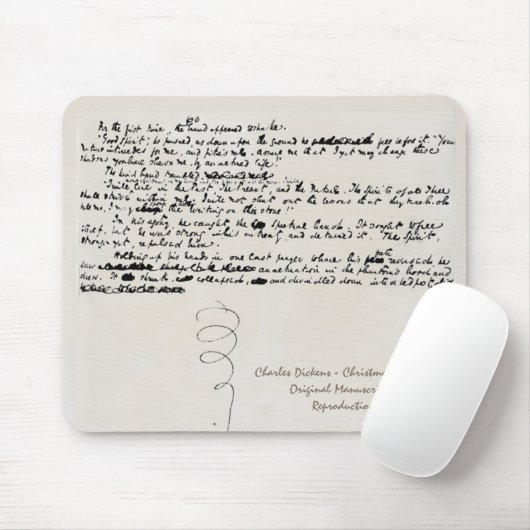 60
For the first time, the hand appeared to shake.
"Good Spirit," he pursued, as down upon the ground he fell before it: "Your
nature intercedes for me, and pities me. Assure me that I yet may change these
shadows you have shewn me, by an altered life!"
The kind hand trembled
"I will live in the Past, the Present, and the Future. The Spirits of all Three
shall strive within me. I will not shut out the lessons that they teach. Oh
tell me, I may the writing on this stone!"
In his agony, he caught the spectral hand. It sought to free
itself, but he was strong in his entreaty, and detained it. The Spirit,
stronger yet, repulsed him.
Holding up his hands in one last prayer to have his fate reversed, he
saw an alteration in the phantom's hood and
dress. It shrunk, collapsed, and dwindled down into a bedpost
Charles Dickens - Christm
Original Manuscr
Reproductio